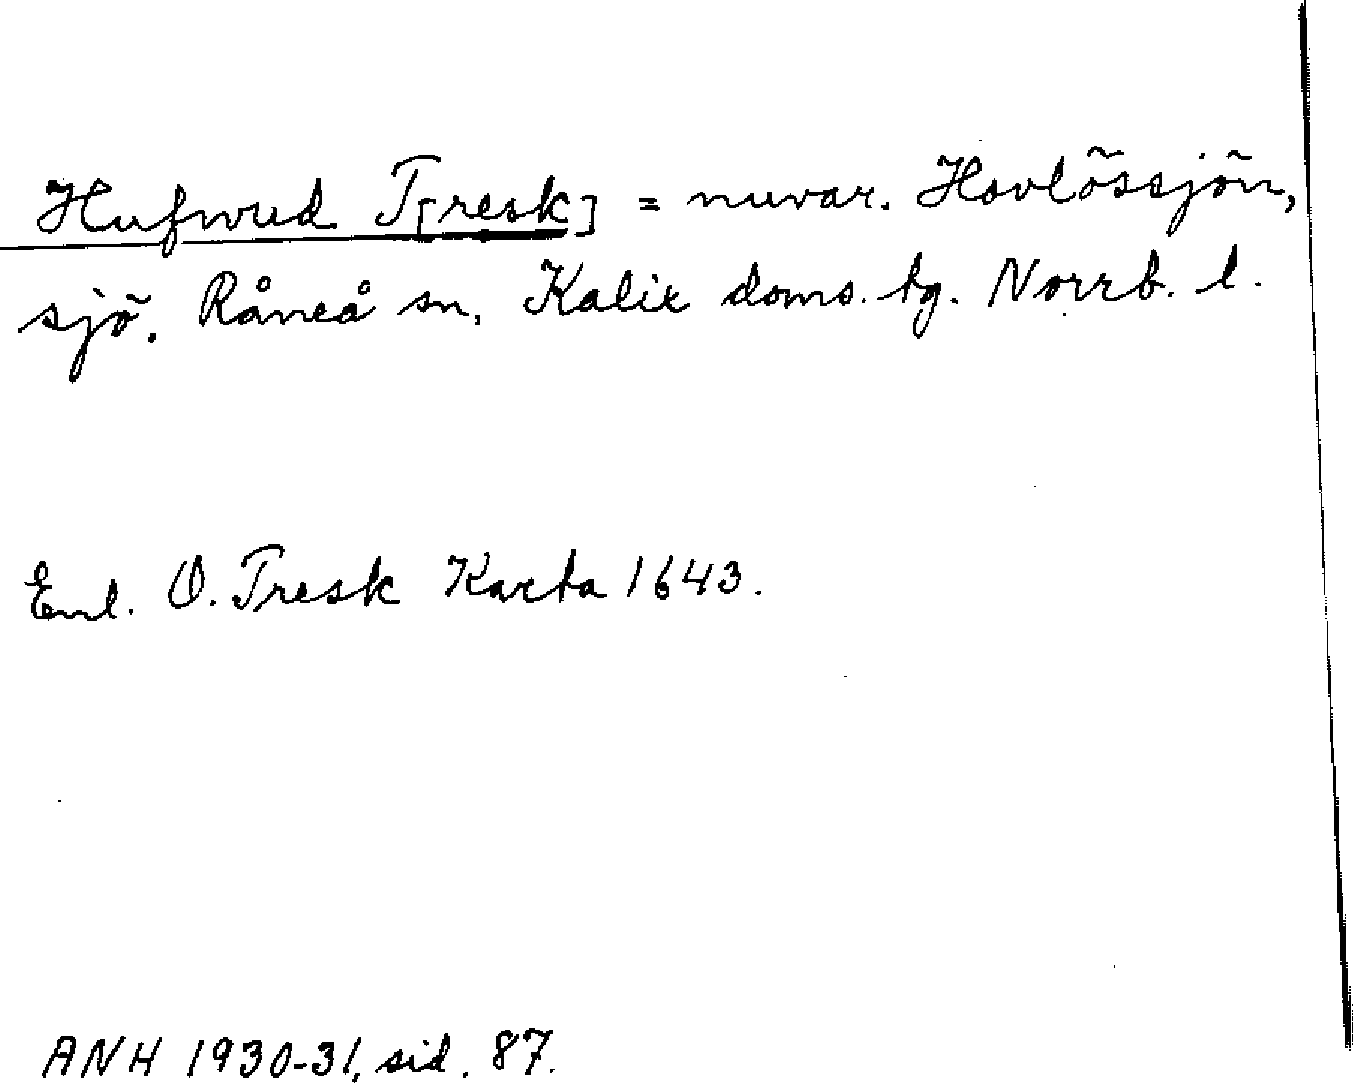 Hufwud T[resk] = nuvar. Hovlössjön,
sjö. Råneå sn, Kalix doms. tg. Norrb. l.
Enl. O. Tresk Karta 1643.
ANH 1930-31, sid. 87.